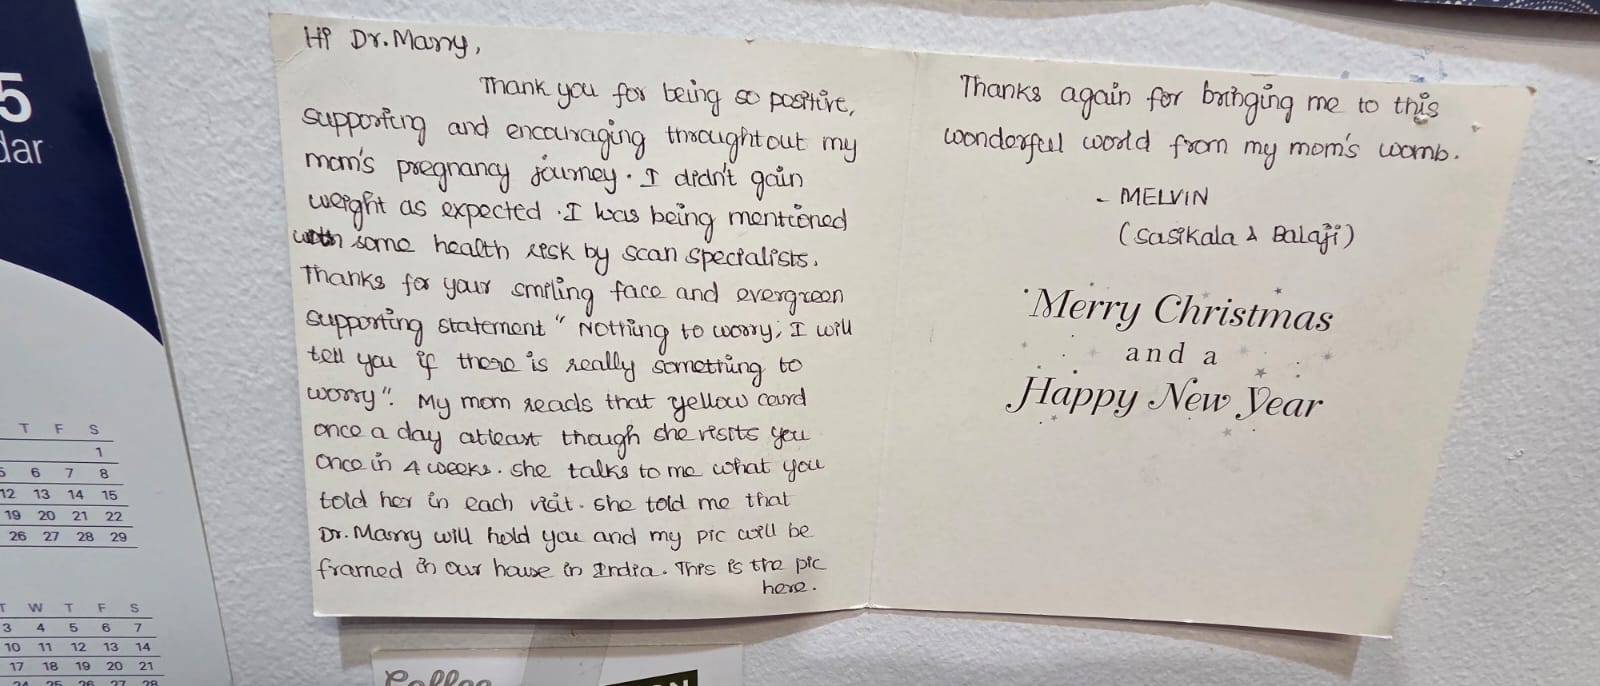 Hi Dr. Marry,
Thank you for being so positive,
supporting and encouraging throughtout my
mom's pregnancy journey. I didn't gain
weight as expected. I was being mentioned
with some health risk by scan specialists.
Thanks for your smiling face and evergreen
supporting statement " Nothing to worry; I will
tell you if there is really something to
worry". My mom reads that yellow card
once a day atleast though she visits you
once in 4 weeks. She talks to me what you
told her in each visit. She told me that
Dr. Marry will hold you and my pic will be
framed in our house in India. This is the pic
here.
Thanks again for bringing me to this
wonderful world from my mom's womb.
- MELVIN
(Sasikala & Balaji)
Merry Christmas
and a
Happy New Year
5
dar
T F S
1
5 6 7 8
12 13 14 15
19 20 21 22
26 27 28 29
T W T F S
3 4 5 6 7
10 11 12 13 14
17 18 19 20 21
24 25 26 27 28
Coffee